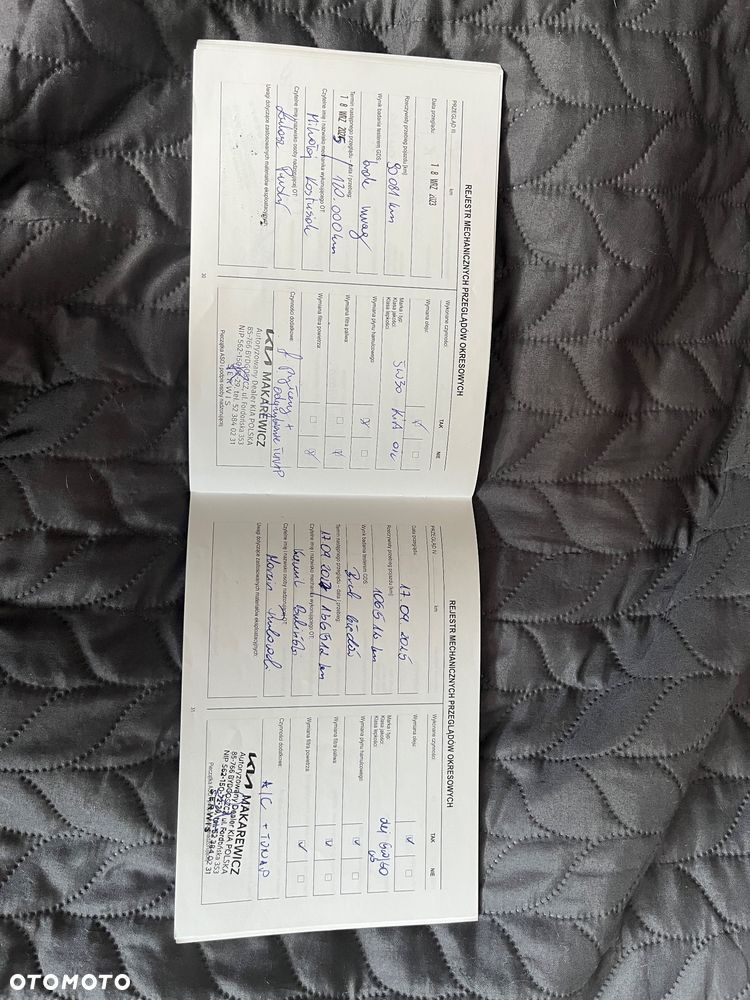 REJESTR MECHANICZNYCH PRZEGLĄDÓW OKRESOWYCH
PRZEGLĄD III km
Data przeglądu: 18 WRZ 2023
Rzeczywisty przebieg pojazdu (km)
90 081 km
Wynik badania testerem GDS:
brak uwag
Termin następnego przeglądu – data / przebieg:
18 WRZ 2025 / 120 000 km
Czytelne imię i nazwisko mechanika wykonującego OT:
Mikołaj
Czytelne imię i nazwisko osoby nadzorującej OT:
Łukasz
Uwagi dotyczące zastosowanych materiałów eksploatacyjnych:
30
Wykonane czynności: TAK NIE
Wymiana oleju:
Marka i typ:
Klasa jakości:
Klasa lepkości:
5W30 KIA OIL
Wymiana płynu hamulcowego
Wymiana filtra paliwa
Wymiana filtra powietrza:
Czynności dodatkowe:
f pyłkowy +
odgrzybianie TUNAP
KIA MAKAREWICZ
Autoryzowany Dealer KIA POLSKA
85-766 BYDGOSZCZ, ul. Fordońska 353
tel. 52 384 02 31
SERWIS
Pieczątka ASO i podpis osoby nadzorującej
REJESTR MECHANICZNYCH PRZEGLĄDÓW OKRESOWYCH
PRZEGLĄD IV km
Data przeglądu: 17.09.2025
Rzeczywisty przebieg pojazdu (km)
106512 km
Wynik badania testerem GDS:
Brak błędów
Termin następnego przeglądu – data / przebieg:
17.09.2027 / 136512 km
Czytelne imię i nazwisko mechanika wykonującego OT:
Czytelne imię i nazwisko osoby nadzorującej OT:
Marcin
Uwagi dotyczące zastosowanych materiałów eksploatacyjnych:
31
Wykonane czynności: TAK NIE
Wymiana oleju:
Marka i typ:
Klasa jakości:
Klasa lepkości:
Wymiana płynu hamulcowego
Wymiana filtra paliwa
Wymiana filtra powietrza:
Czynności dodatkowe:
A/C + TUNAP
KIA MAKAREWICZ
Autoryzowany Dealer KIA POLSKA
85-766 BYDGOSZCZ, ul. Fordońska 353
tel. 52 384 02 31
SERWIS
OTOMOTO